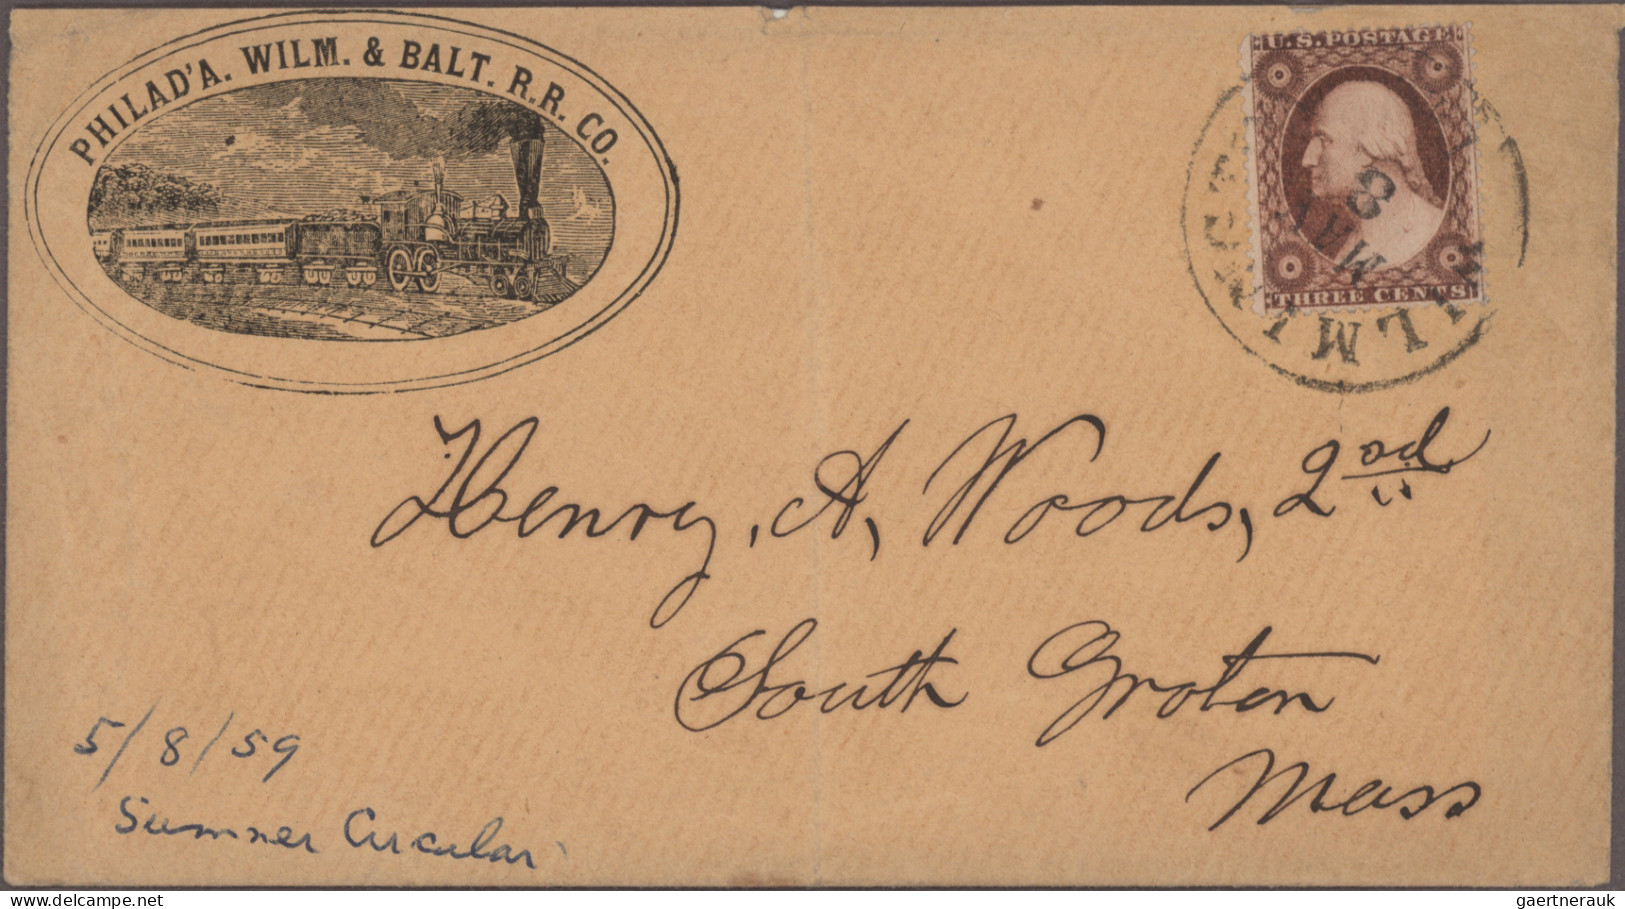 PHILAD'A. WILM. & BALT. R.R. CO.
U.S. POSTAGE
THREE CENTS
WILMINGTON
MAY
8
Henry, A, Woods, 2nd
South Groton
Mass
5/8/59
Sumner Circular
gaertnerauk @ delcampe.net